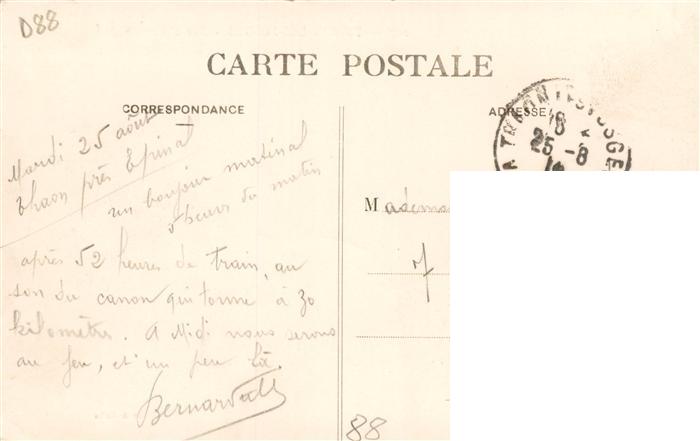 D88
CARTE POSTALE
CORRESPONDANCE
ADRESSE
THAON LES VOSGE
18
25 -8
14
Mardi 25 août
Thaon près Epinal
un bonjour matinal
5 heures du matin
après 52 heures de train, au
son du canon qui tonne à 30
kilomètres. A Midi nous serons
au feu, et un peu là.
M
88